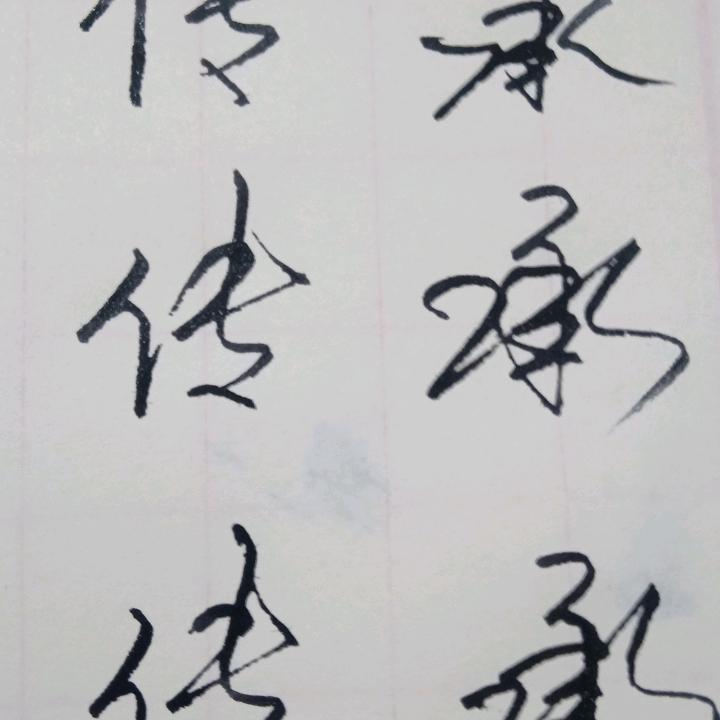 传 承
传 承
传 承